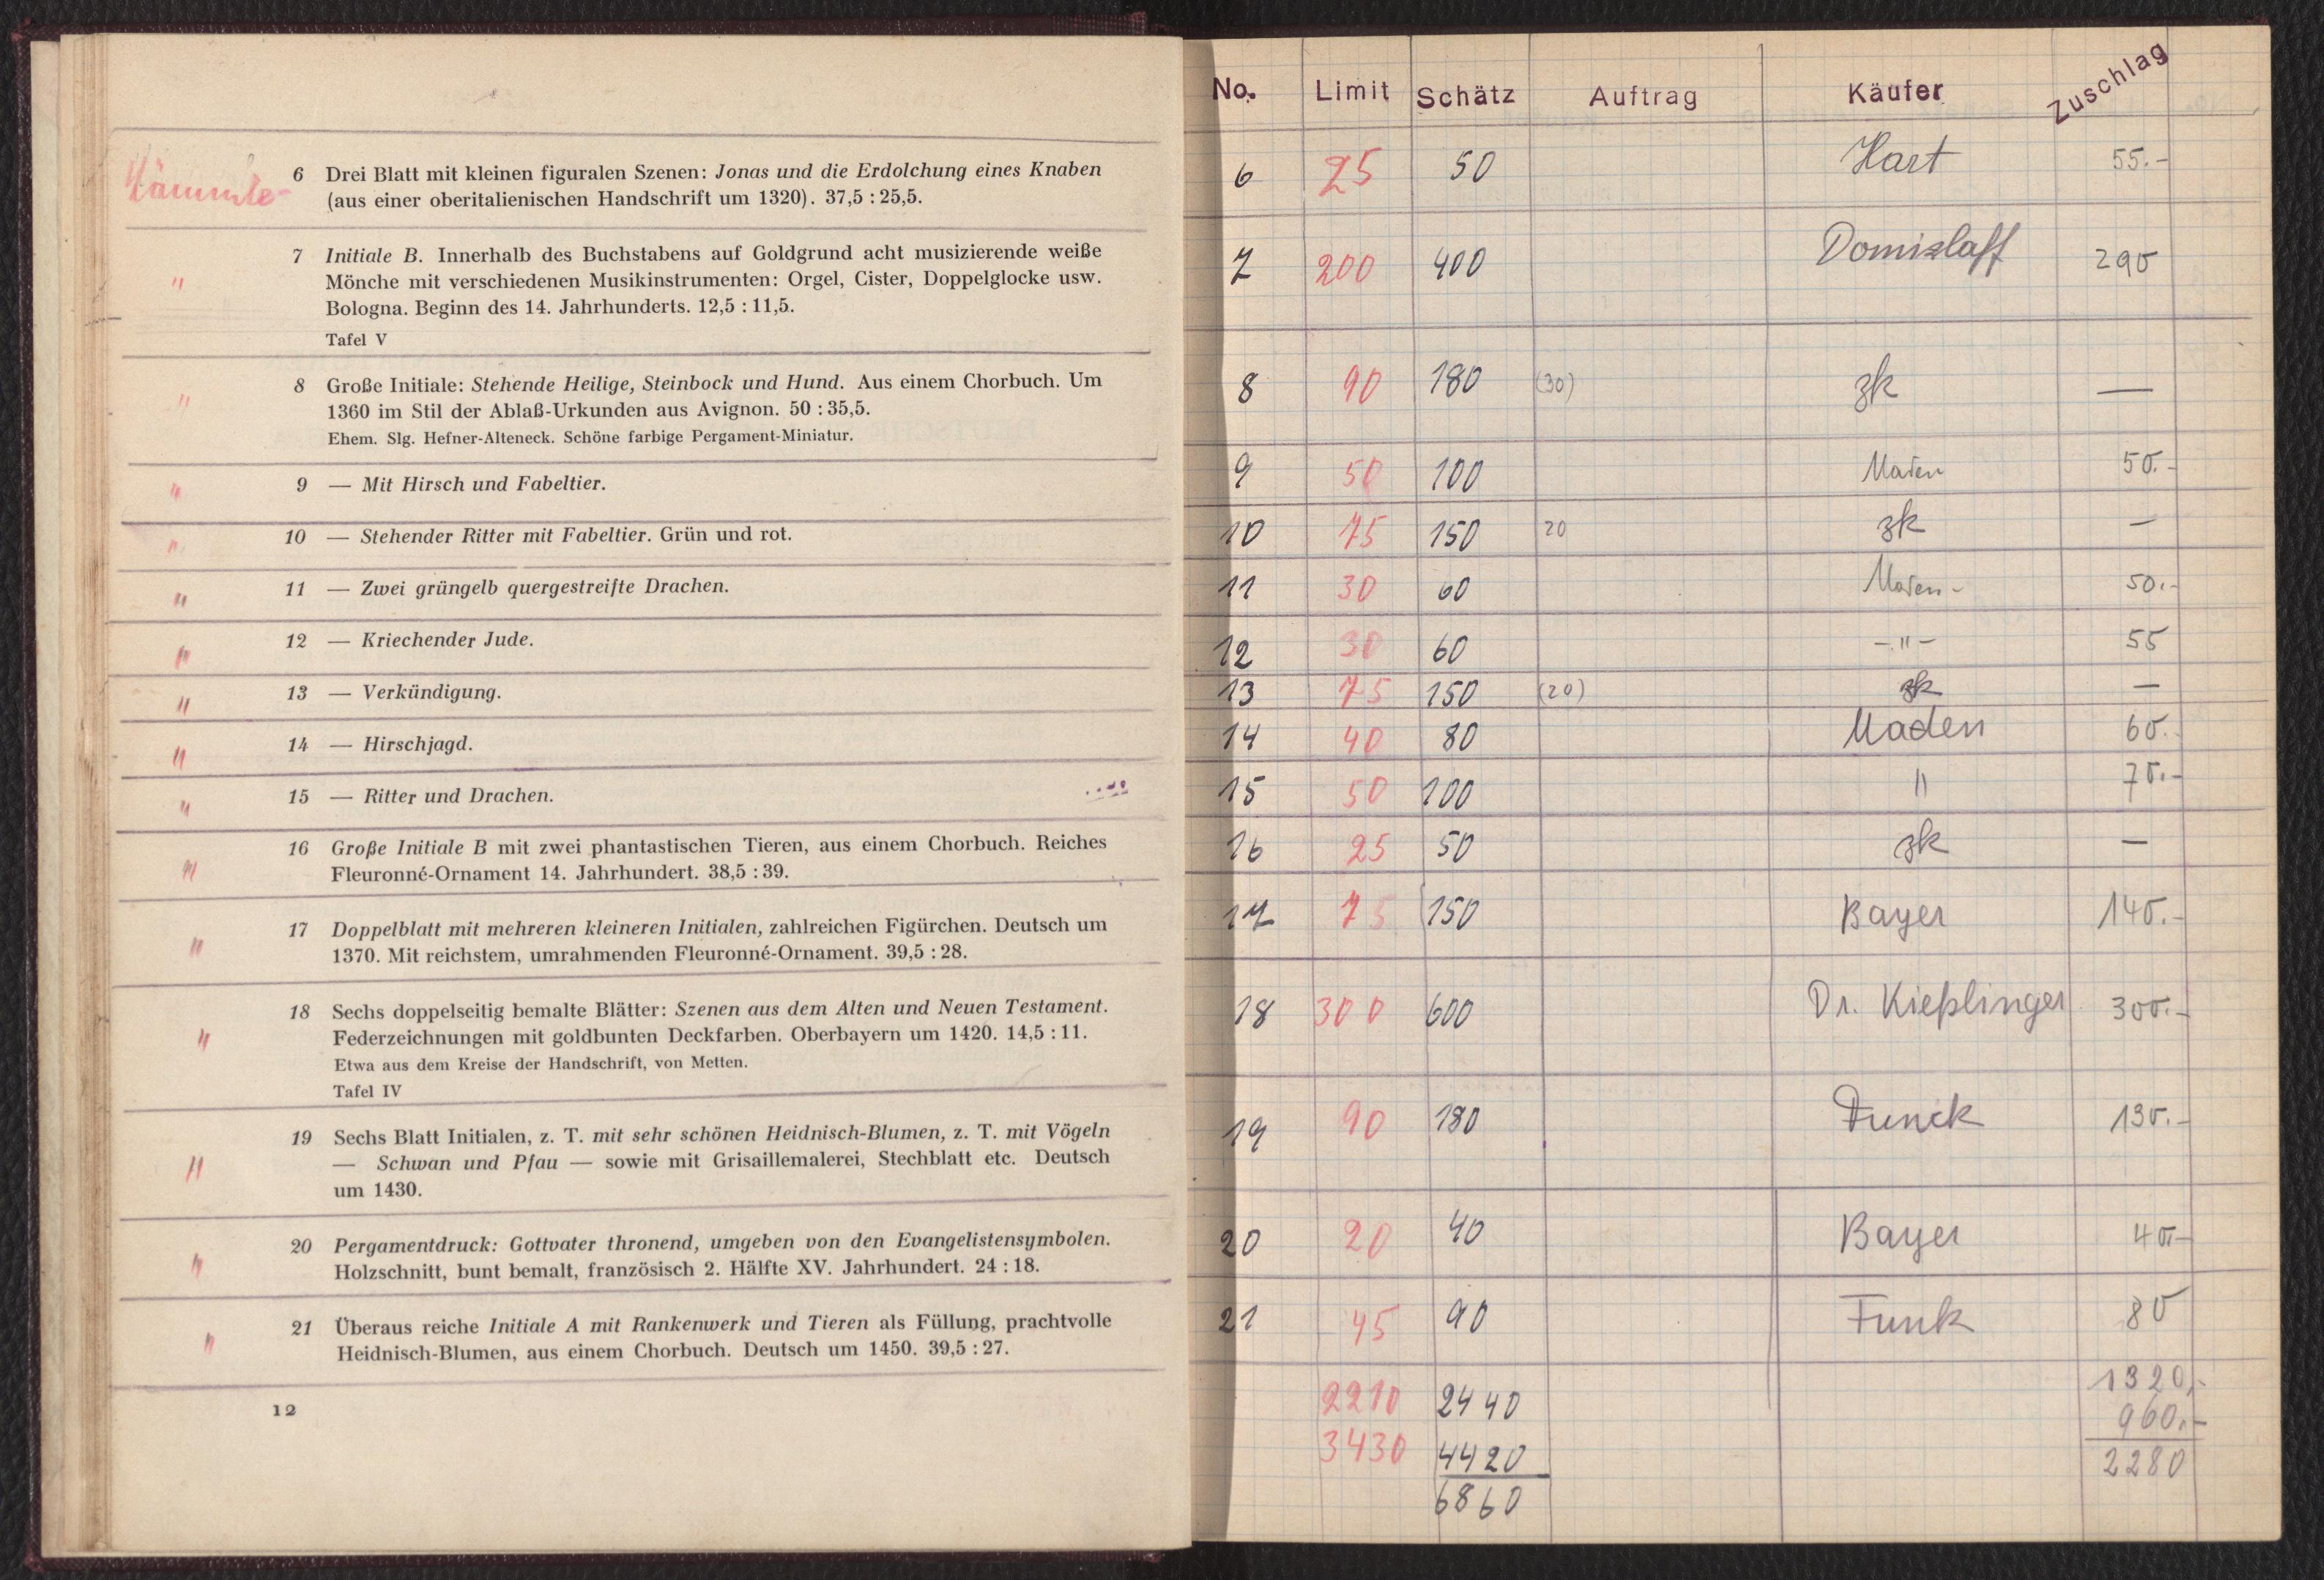 6 Drei Blatt mit kleinen figuralen Szenen: Jonas und die Erdolchung eines Knaben
(aus einer oberitalienischen Handschrift um 1320). 37,5 : 25,5.
" 7 Initiale B. Innerhalb des Buchstabens auf Goldgrund acht musizierende weiße
Mönche mit verschiedenen Musikinstrumenten: Orgel, Cister, Doppelglocke usw.
Bologna. Beginn des 14. Jahrhunderts. 12,5 : 11,5.
Tafel V
" 8 Große Initiale: Stehende Heilige, Steinbock und Hund. Aus einem Chorbuch. Um
1360 im Stil der Ablaß-Urkunden aus Avignon. 50 : 35,5.
Ehem. Slg. Hefner-Alteneck. Schöne farbige Pergament-Miniatur.
" 9 — Mit Hirsch und Fabeltier.
" 10 — Stehender Ritter mit Fabeltier. Grün und rot.
" 11 — Zwei grüngelb quergestreifte Drachen.
" 12 — Kriechender Jude.
" 13 — Verkündigung.
" 14 — Hirschjagd.
" 15 — Ritter und Drachen.
" 16 Große Initiale B mit zwei phantastischen Tieren, aus einem Chorbuch. Reiches
Fleuronné-Ornament 14. Jahrhundert. 38,5 : 39.
" 17 Doppelblatt mit mehreren kleineren Initialen, zahlreichen Figürchen. Deutsch um
1370. Mit reichstem, umrahmenden Fleuronné-Ornament. 39,5 : 28.
" 18 Sechs doppelseitig bemalte Blätter: Szenen aus dem Alten und Neuen Testament.
Federzeichnungen mit goldbunten Deckfarben. Oberbayern um 1420. 14,5 : 11.
Etwa aus dem Kreise der Handschrift, von Metten.
Tafel IV
" 19 Sechs Blatt Initialen, z. T. mit sehr schönen Heidnisch-Blumen, z. T. mit Vögeln
— Schwan und Pfau — sowie mit Grisaillemalerei, Stechblatt etc. Deutsch
um 1430.
" 20 Pergamentdruck: Gottvater thronend, umgeben von den Evangelistensymbolen.
Holzschnitt, bunt bemalt, französisch 2. Hälfte XV. Jahrhundert. 24 : 18.
" 21 Überaus reiche Initiale A mit Rankenwerk und Tieren als Füllung, prachtvolle
Heidnisch-Blumen, aus einem Chorbuch. Deutsch um 1450. 39,5 : 27.
12
No. Limit Schätz Auftrag Käufer Zuschlag
6 25 50 Hart 55.-
7 200 400 Domizlaff 290
8 90 180 (30) zk —
9 50 100 Maden 50.-
10 75 150 20 zk —
11 30 60 Maden - 50.-
12 30 60 - " - 55
13 75 150 (20) zk —
14 40 80 Maden 60.-
15 50 100 " 70.-
16 25 50 zk —
17 75 150 Bayer 140.-
18 300 600 Dr. Kießlinger 300.-
19 90 180 Funck 130.-
20 20 40 Bayer 40.-
21 45 90 Funk 80
2210 2440 1320.-
3430 4420 960.-
6860 2280